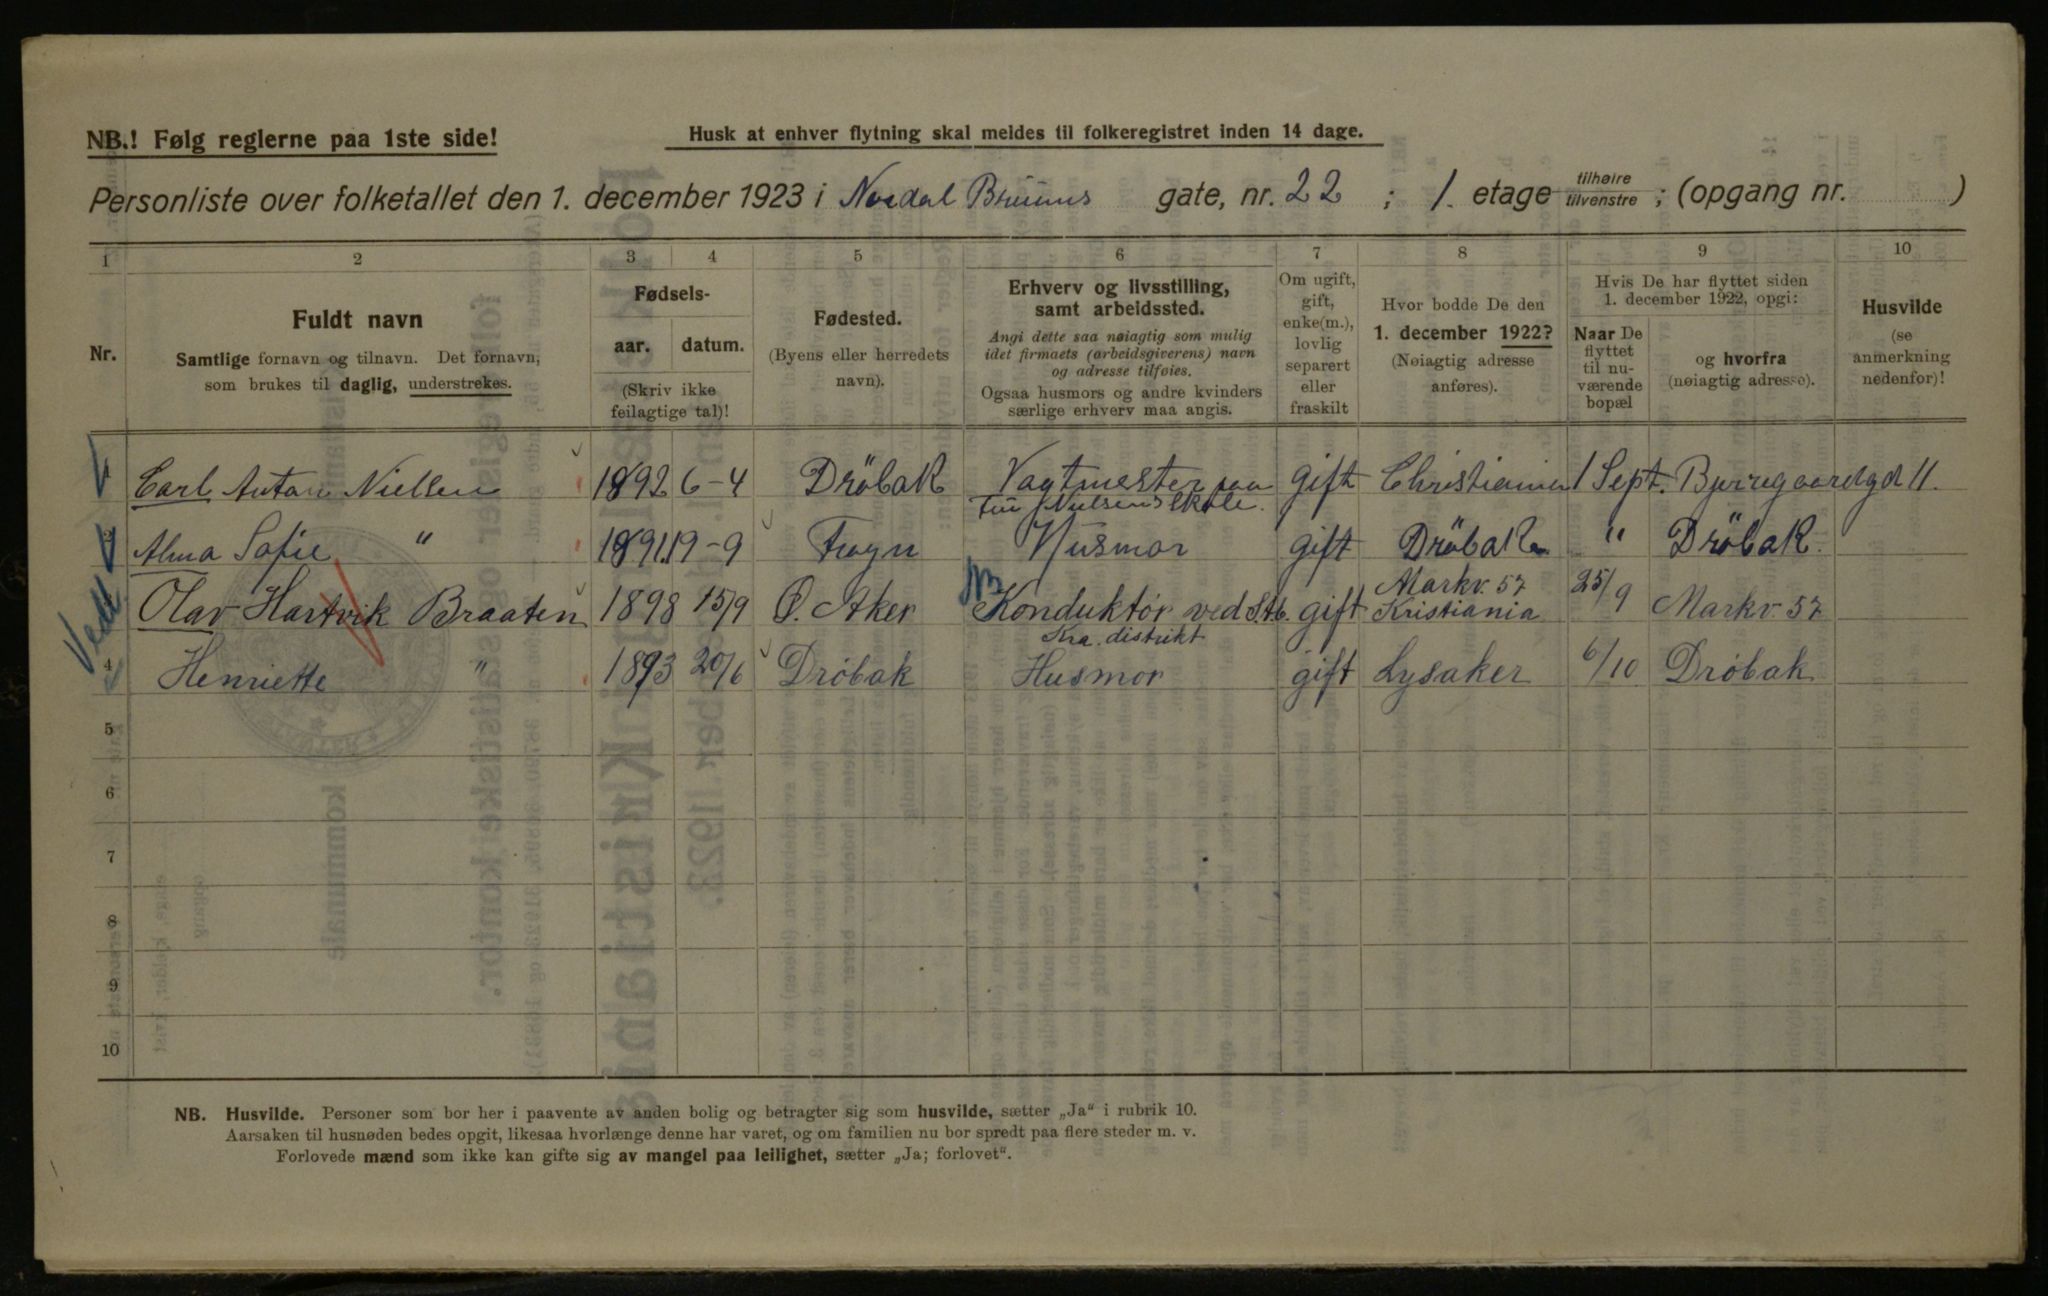 NB.! Følg reglerne paa 1ste side!
Husk at enhver flytning skal meldes til folkeregistret inden 14 dage.
Personliste over folketallet den 1. december 1923 i Nordal Bruuns gate, nr. 22 ; 1. etage tilhøire tilvenstre ; (opgang nr. )
1 2 3 4 5 6 7 8 9 10
Nr.
Fuldt navn
Samtlige fornavn og tilnavn. Det fornavn,
som brukes til daglig, understrekes.
Fødsels-
aar. datum.
(Skriv ikke
feilagtige tal)!
Fødested.
(Byens eller herredets
navn).
Erhverv og livsstilling,
samt arbeidssted.
Angi dette saa nøiagtig som mulig
idet firmaets (arbeidsgiverens) navn
og adresse tilføies.
Ogsaa husmors og andre kvinders
særlige erhverv maa angis.
Om ugift,
gift,
enke(m.),
lovlig
separert
eller
fraskilt
Hvor bodde De den
1. december 1922?
(Nøiagtig adresse
anføres).
Hvis De har flyttet siden
1. december 1922, opgi:
Naar De
flyttet
til nu-
værende
bopæl
og hvorfra
(nøiagtig adresse).
Husvilde
(se
anmerkning
nedenfor)!
Carl Anton Nielsen 1892 6-4 Dröbak Vagtmester paa gift Christiania 1 Sept. Bjerregaardsgd 11.
Nielsens Skole.
2 Alma Sofie " 1891 19-9 Frogn Husmor gift Dröbak " Dröbak.
Olav Hartvik Braaten 1898 15/9 Ø. Aker NB Konduktør ved S.tb. gift Markv. 57 Kristiania 25/9 Markv. 57
Kra. distrikt
4 Henriette " 1893 20/6 Drøbak Husmor gift Lysaker 6/10 Drøbak
5
6
7
8
9
10
NB. Husvilde. Personer som bor her i paavente av anden bolig og betragter sig som husvilde, sætter „Ja“ i rubrik 10.
Aarsaken til husnøden bedes opgit, likesaa hvorlænge denne har varet, og om familien nu bor spredt paa flere steder m. v.
Forlovede mænd som ikke kan gifte sig av mangel paa leilighet, sætter „Ja; forlovet“.